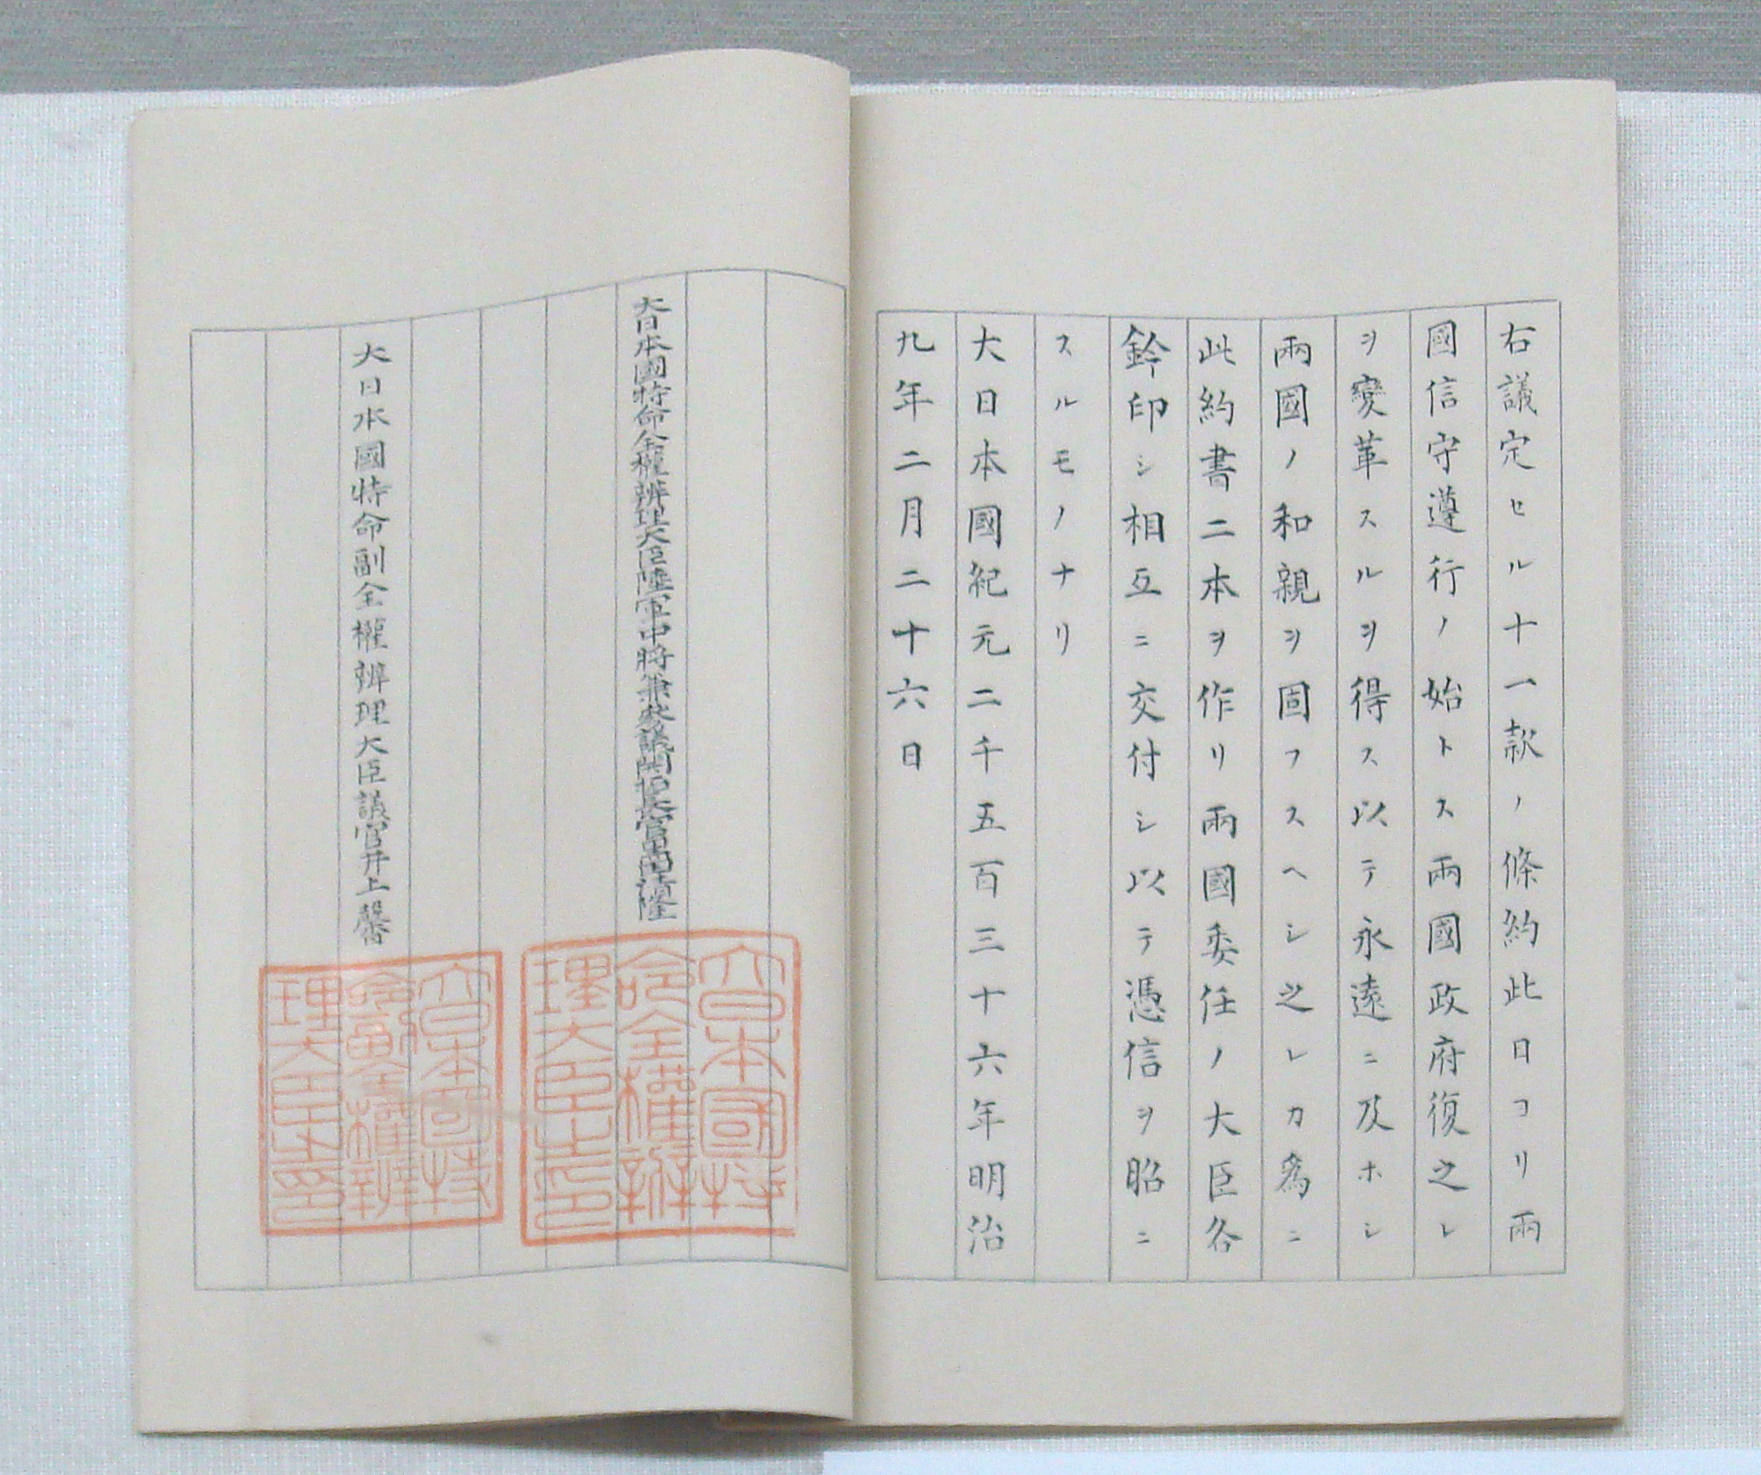 右議定セル十一款ノ條約此日ヨリ兩
國信守遵行ノ始トス兩國政府復之レ
ヲ變革スルヲ得ス以テ永遠ニ及ホシ
兩國ノ和親ヲ固フスヘシ之レカ爲ニ
此約書二本ヲ作リ兩國委任ノ大臣各
鈐印シ相互ニ交付シ以テ憑信ヲ昭ニ
スルモノナリ
大日本國紀元二千五百三十六年明治
九年二月二十六日
大日本國特命全權辨理大臣陸軍中將兼參議開拓長官黒田清隆
大日本國特命全權辨理大臣之印
大日本國特命副全權辨理大臣議官井上馨
大日本國特命副全權辨理大臣之印